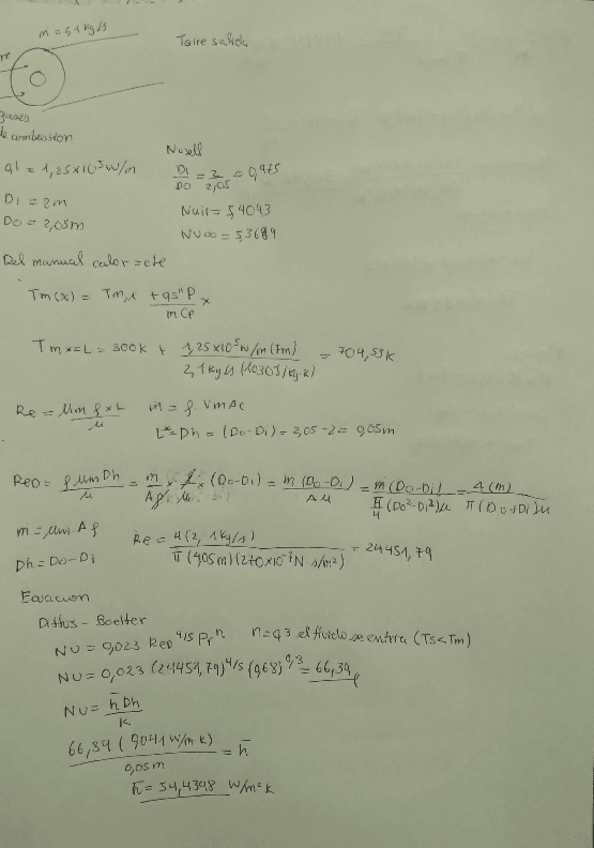 Taire salida
gases
de combustion
q' = 1,25x10⁵ W/m
Di = 2m
Do = 2,05m
Nusell
Di/Do = 2/2,05 = 0,975
Nuii = 5,4043
Nuoo = 5,3689
Del manual calor = cte
Tm(x) = Tm,i + qs"P/mCp x
Tm x=L = 300k + 1,25x10⁵ W/m (7m) / 2,1 kg/s (1030J/kg·k) = 704,53k
Re = μm ρ x L / μ    ṁ = ρ. VmAc
L* = Dh = (Do-Di) = 2,05-2 = 0,05m
ReD = ρ μm Dh / μ = ṁ/Aρ x ρ/μ x (Do-Di) = ṁ (Do-Di) / Aμ = ṁ(Do-Di) / π/4 (Do²-Di²)μ = 4(ṁ) / π(Do+Di)μ
m = μm. Aρ
Dh = Do-Di
Re = 4(2,1kg/s) / π (4,05m)(270x10⁻⁷N s/m²) = 24451,79
Ecuacion
Dittus - Boelter
NU = 0,023 ReD⁴/⁵ Prⁿ    n=0,3 el fluido se enfria (Ts<Tm)
NU = 0,023 (24451,79)⁴/⁵ (0,68)⁰,³ = 66,39
NU = h̄ Dh / K
66,39 (0,041 W/m k) / 0,05m = h̄
h̄ = 54,4398 W/m²k